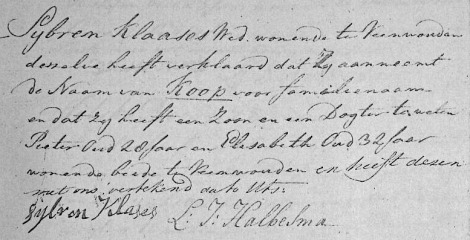 Sybren Klaases Wed. wonende te Veenwouden
deszelve heeft verklaard dat Zij aanneemt
de Naam van Koop voor familienaam
en dat Zij heeft een Zoon en een Dogter te weten
Pieter Oud 28 Jaar en Elisabeth Oud 32 Jaar
wonende beide te Veenwouden en heeft desen
met ons vertekend dato Uts:
Sybren Klases L: J: Halbesma